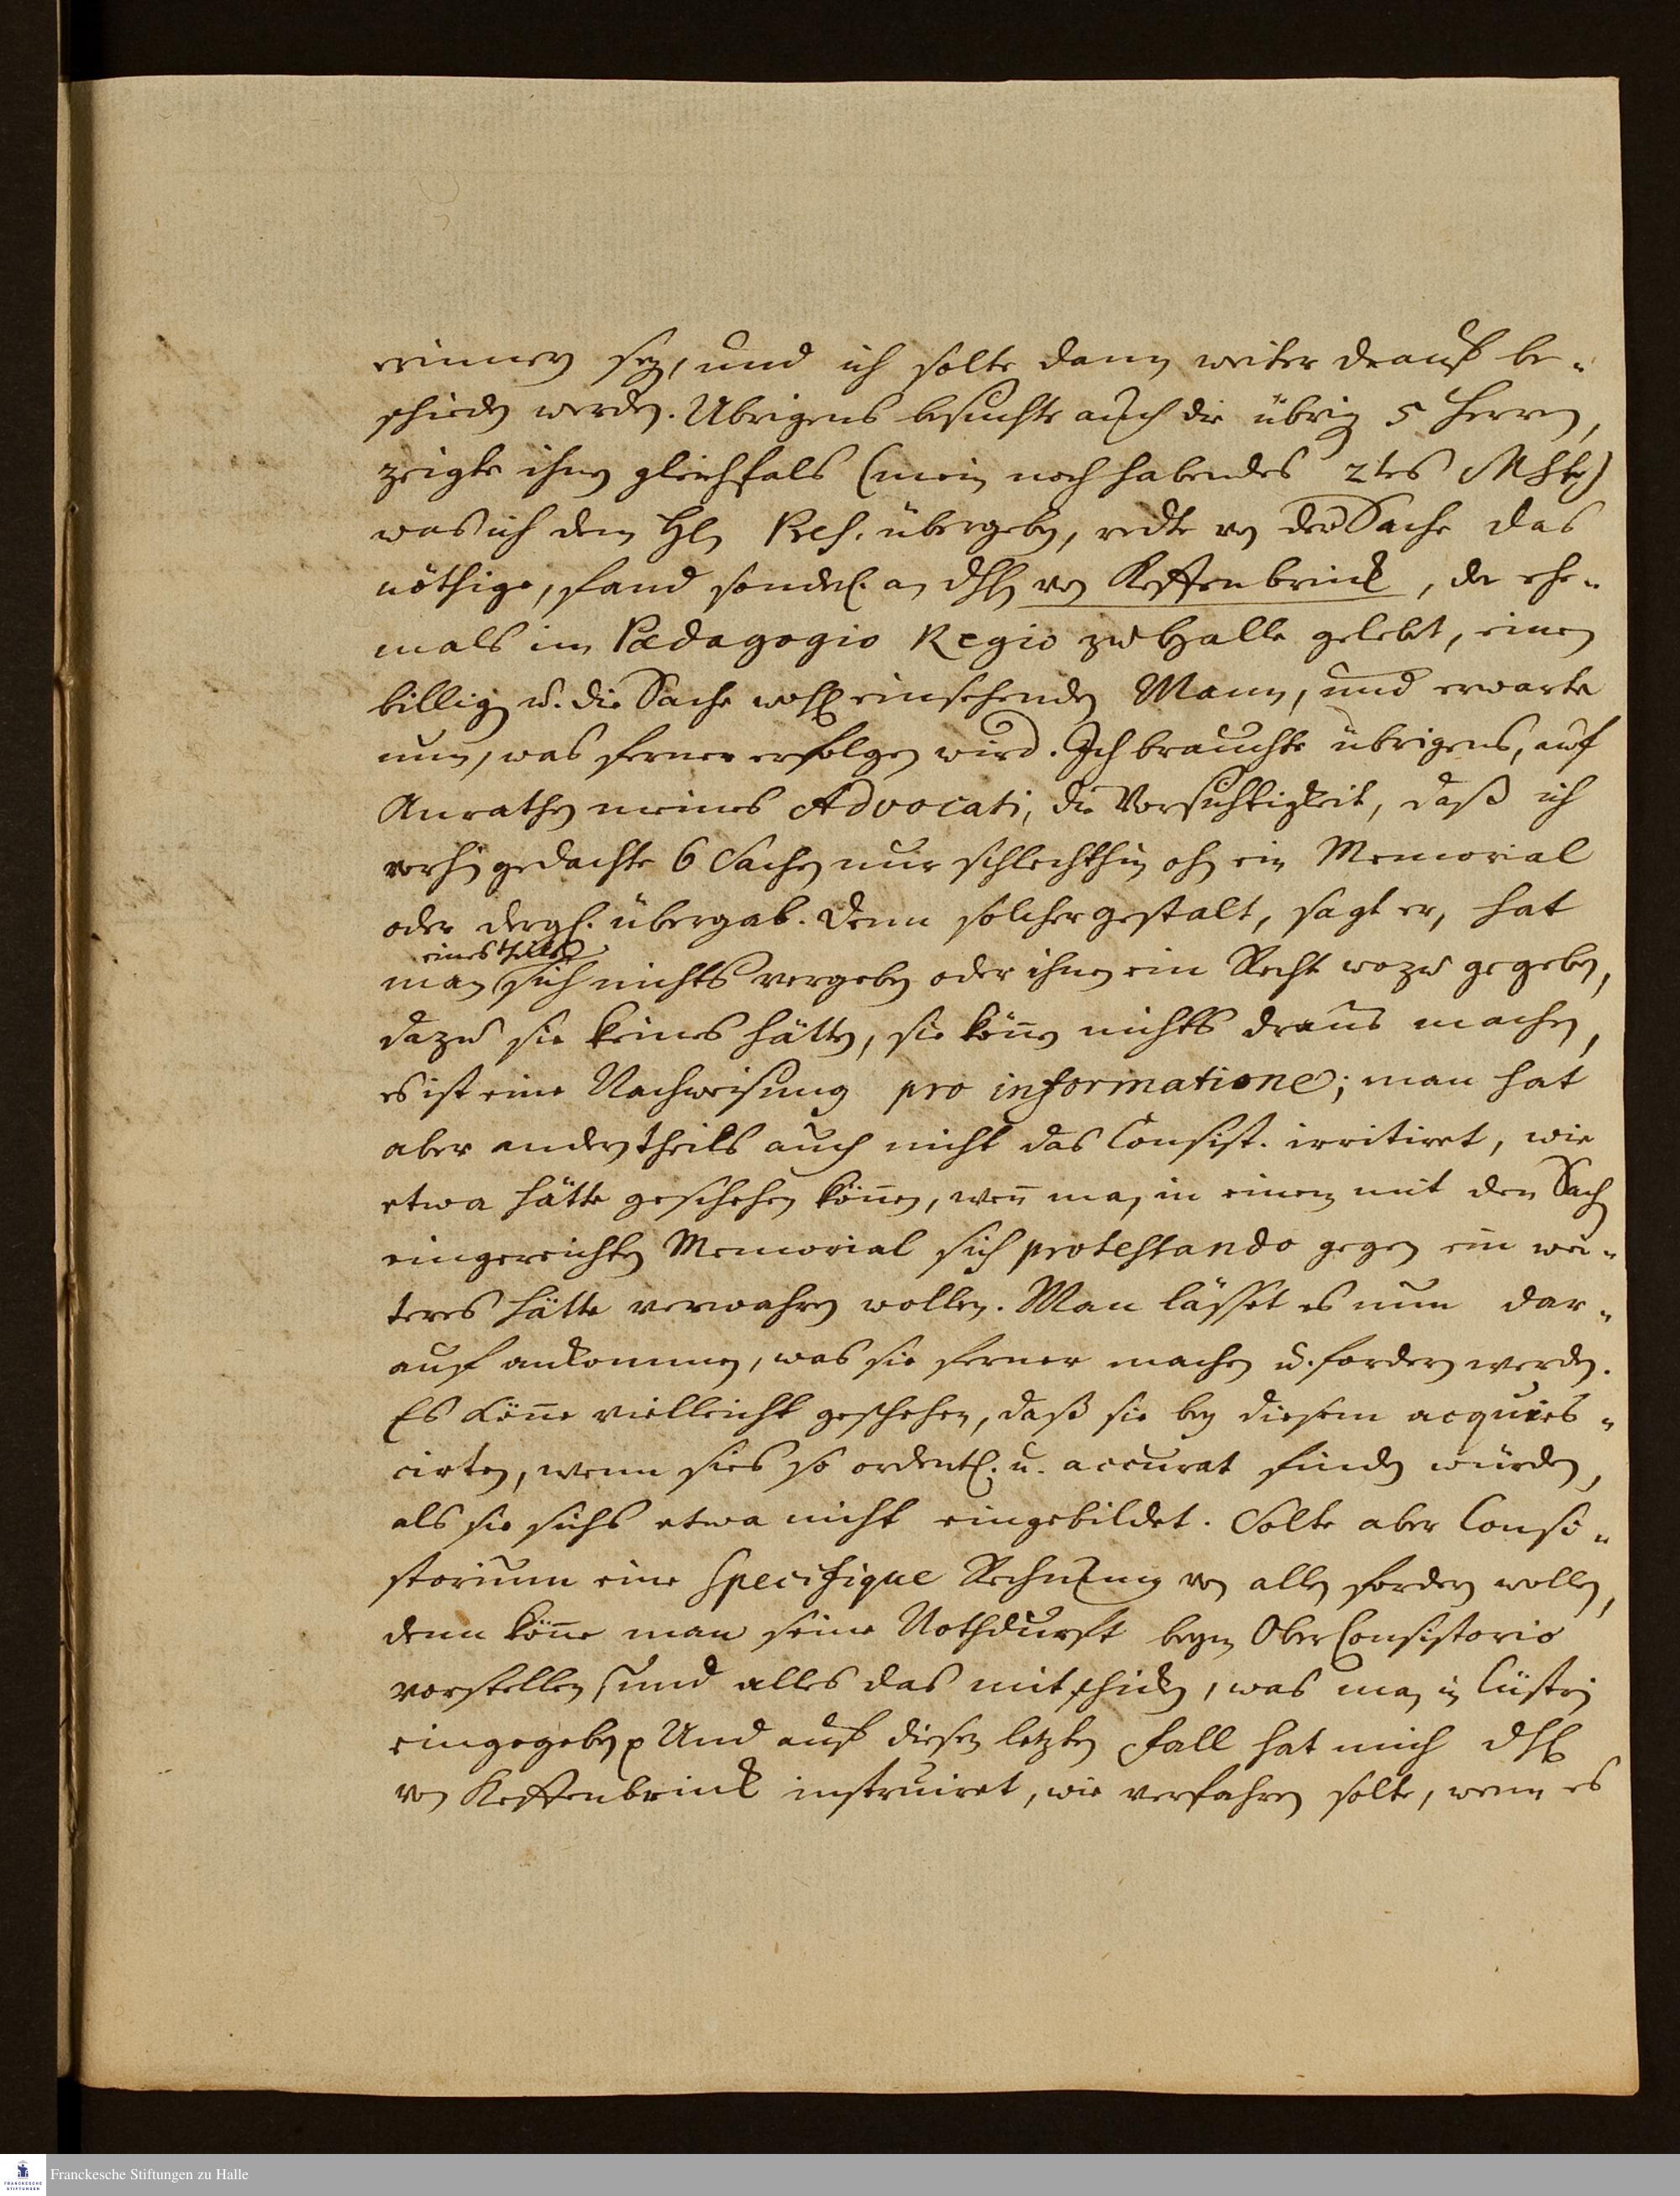 erinnern sey, und ich solte dann weiter drauf be-
schieden werden. Übrigens besuchte auch die übrig 5 Herren,
zeigte ihnen gleichfals (mein noch habendes 2tes MSt)
was ich dem Hln Ref. übergeben, redte von der Sache das
nöthige, fand sonderl. an dHln von Keffenbrinck, der ehe-
mals im Pædagogio Regio zu Halle gelebt, einen
billigen u. die Sache wohl einsehenden Mann, und erwarte
nun, was ferner erfolgen wird. Ich brauchte übrigens, auf
Anrathen meines Advocati, die Vorsichtigkeit, daß ich
vorhin gedachte 6 Sachen nur schlechthin ohn ein Memorial
oder dergl. übergab. Denn solchergestalt, sagt er, hat
einestheils
man sich nichts vergeben oder ihnen ein Recht wozu gegeben,
dazu sie keines hätten, sie könen nichts draus machen,
es ist eine Nachweisung pro informatione; man hat
aber anderntheils auch nicht das Consist. irritiret, wie
etwa hätte geschehen könen, wen man in einem mit den Sachen
eingereichten Memorial sich protestando gegen ein wei-
teres hätte verwahren wollen. Man lässet es nun dar-
auf ankommen, was sie ferner machen u. fordern werden.
Es könne vielleicht geschehen, daß sie bey diesem acquies-
cirten, wenn sies so ordentl. u. accurat finden würden,
als sie sichs etwa nicht eingebildet. Solte aber Consi-
storium eine specifique Rechnung von allen fordern wollen,
denn könne man seine Nothdurft beym OberConsistorio
vorstellen, und alles das mitschicken, was man in Cüstrin
eingegeben p Und auf diesen letzten Fall hat mich dHl
von Keffenbrinck instruiret, wie verfahren solte, wenn es
Franckesche Stiftungen zu Halle